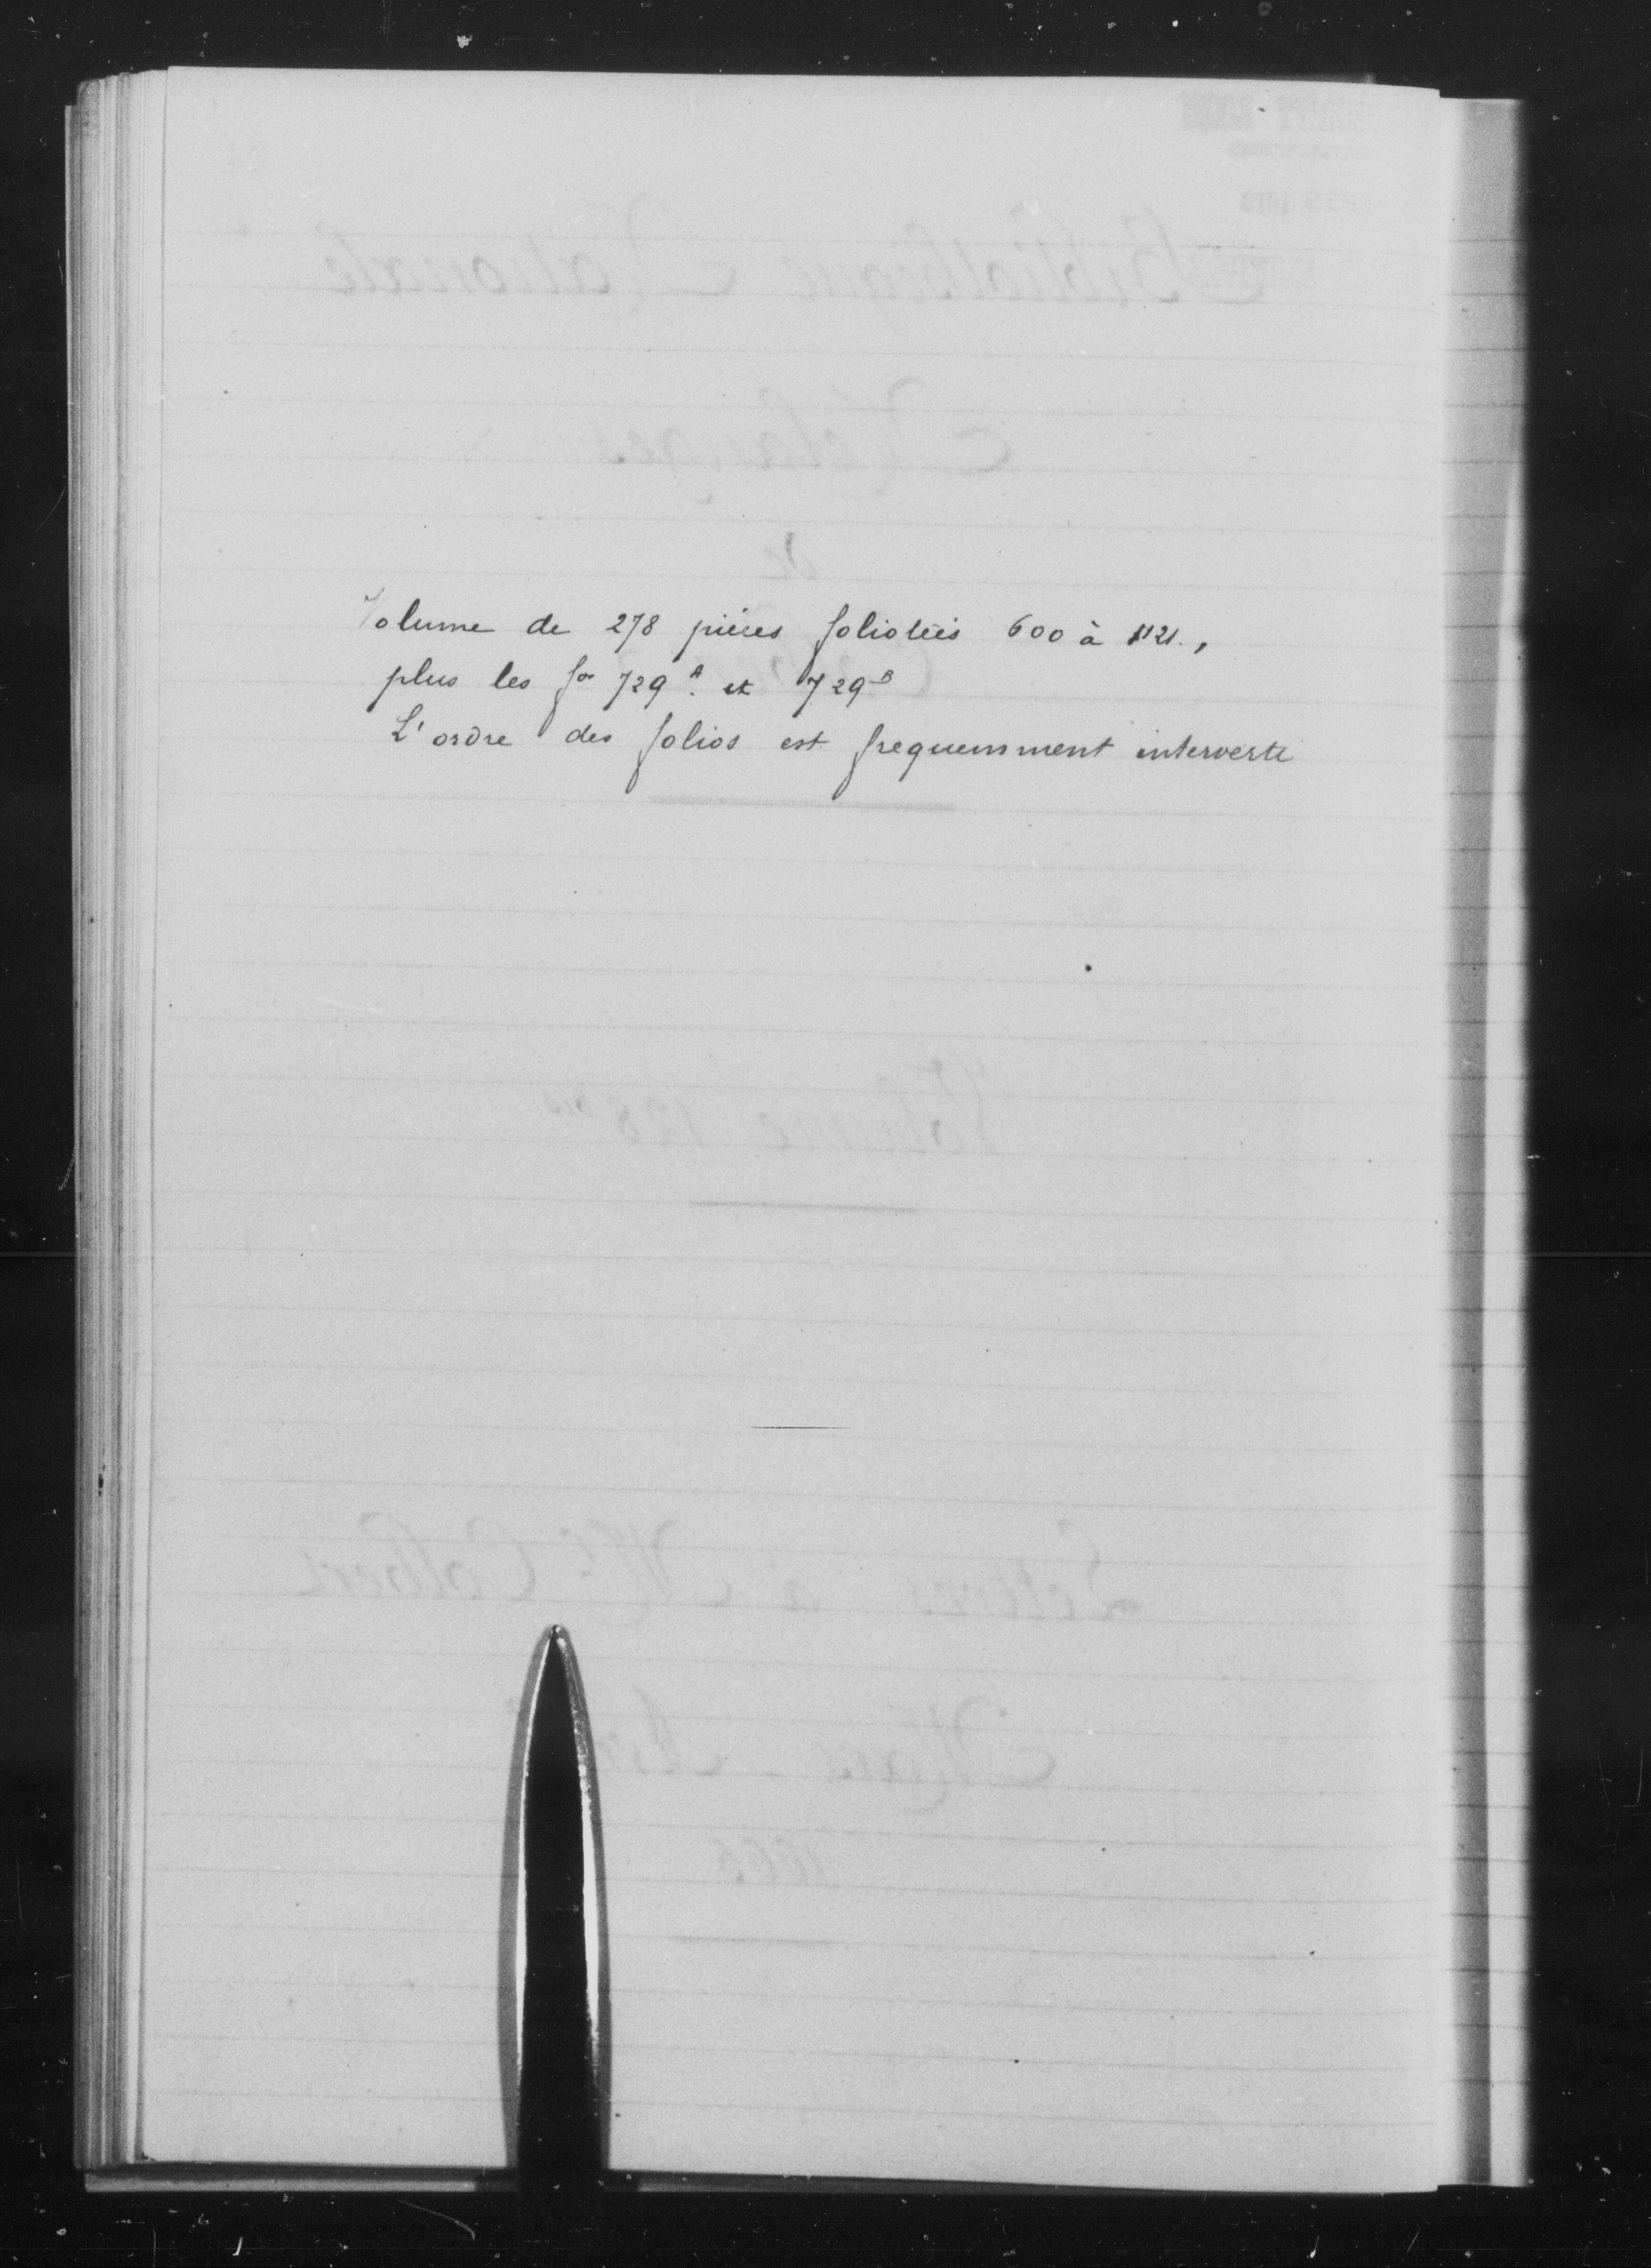 Volume de 278 pièces foliotées 600 à 1121.,
plus les fos 729 A. et 729 B
L'ordre des folios est frequemment interverti